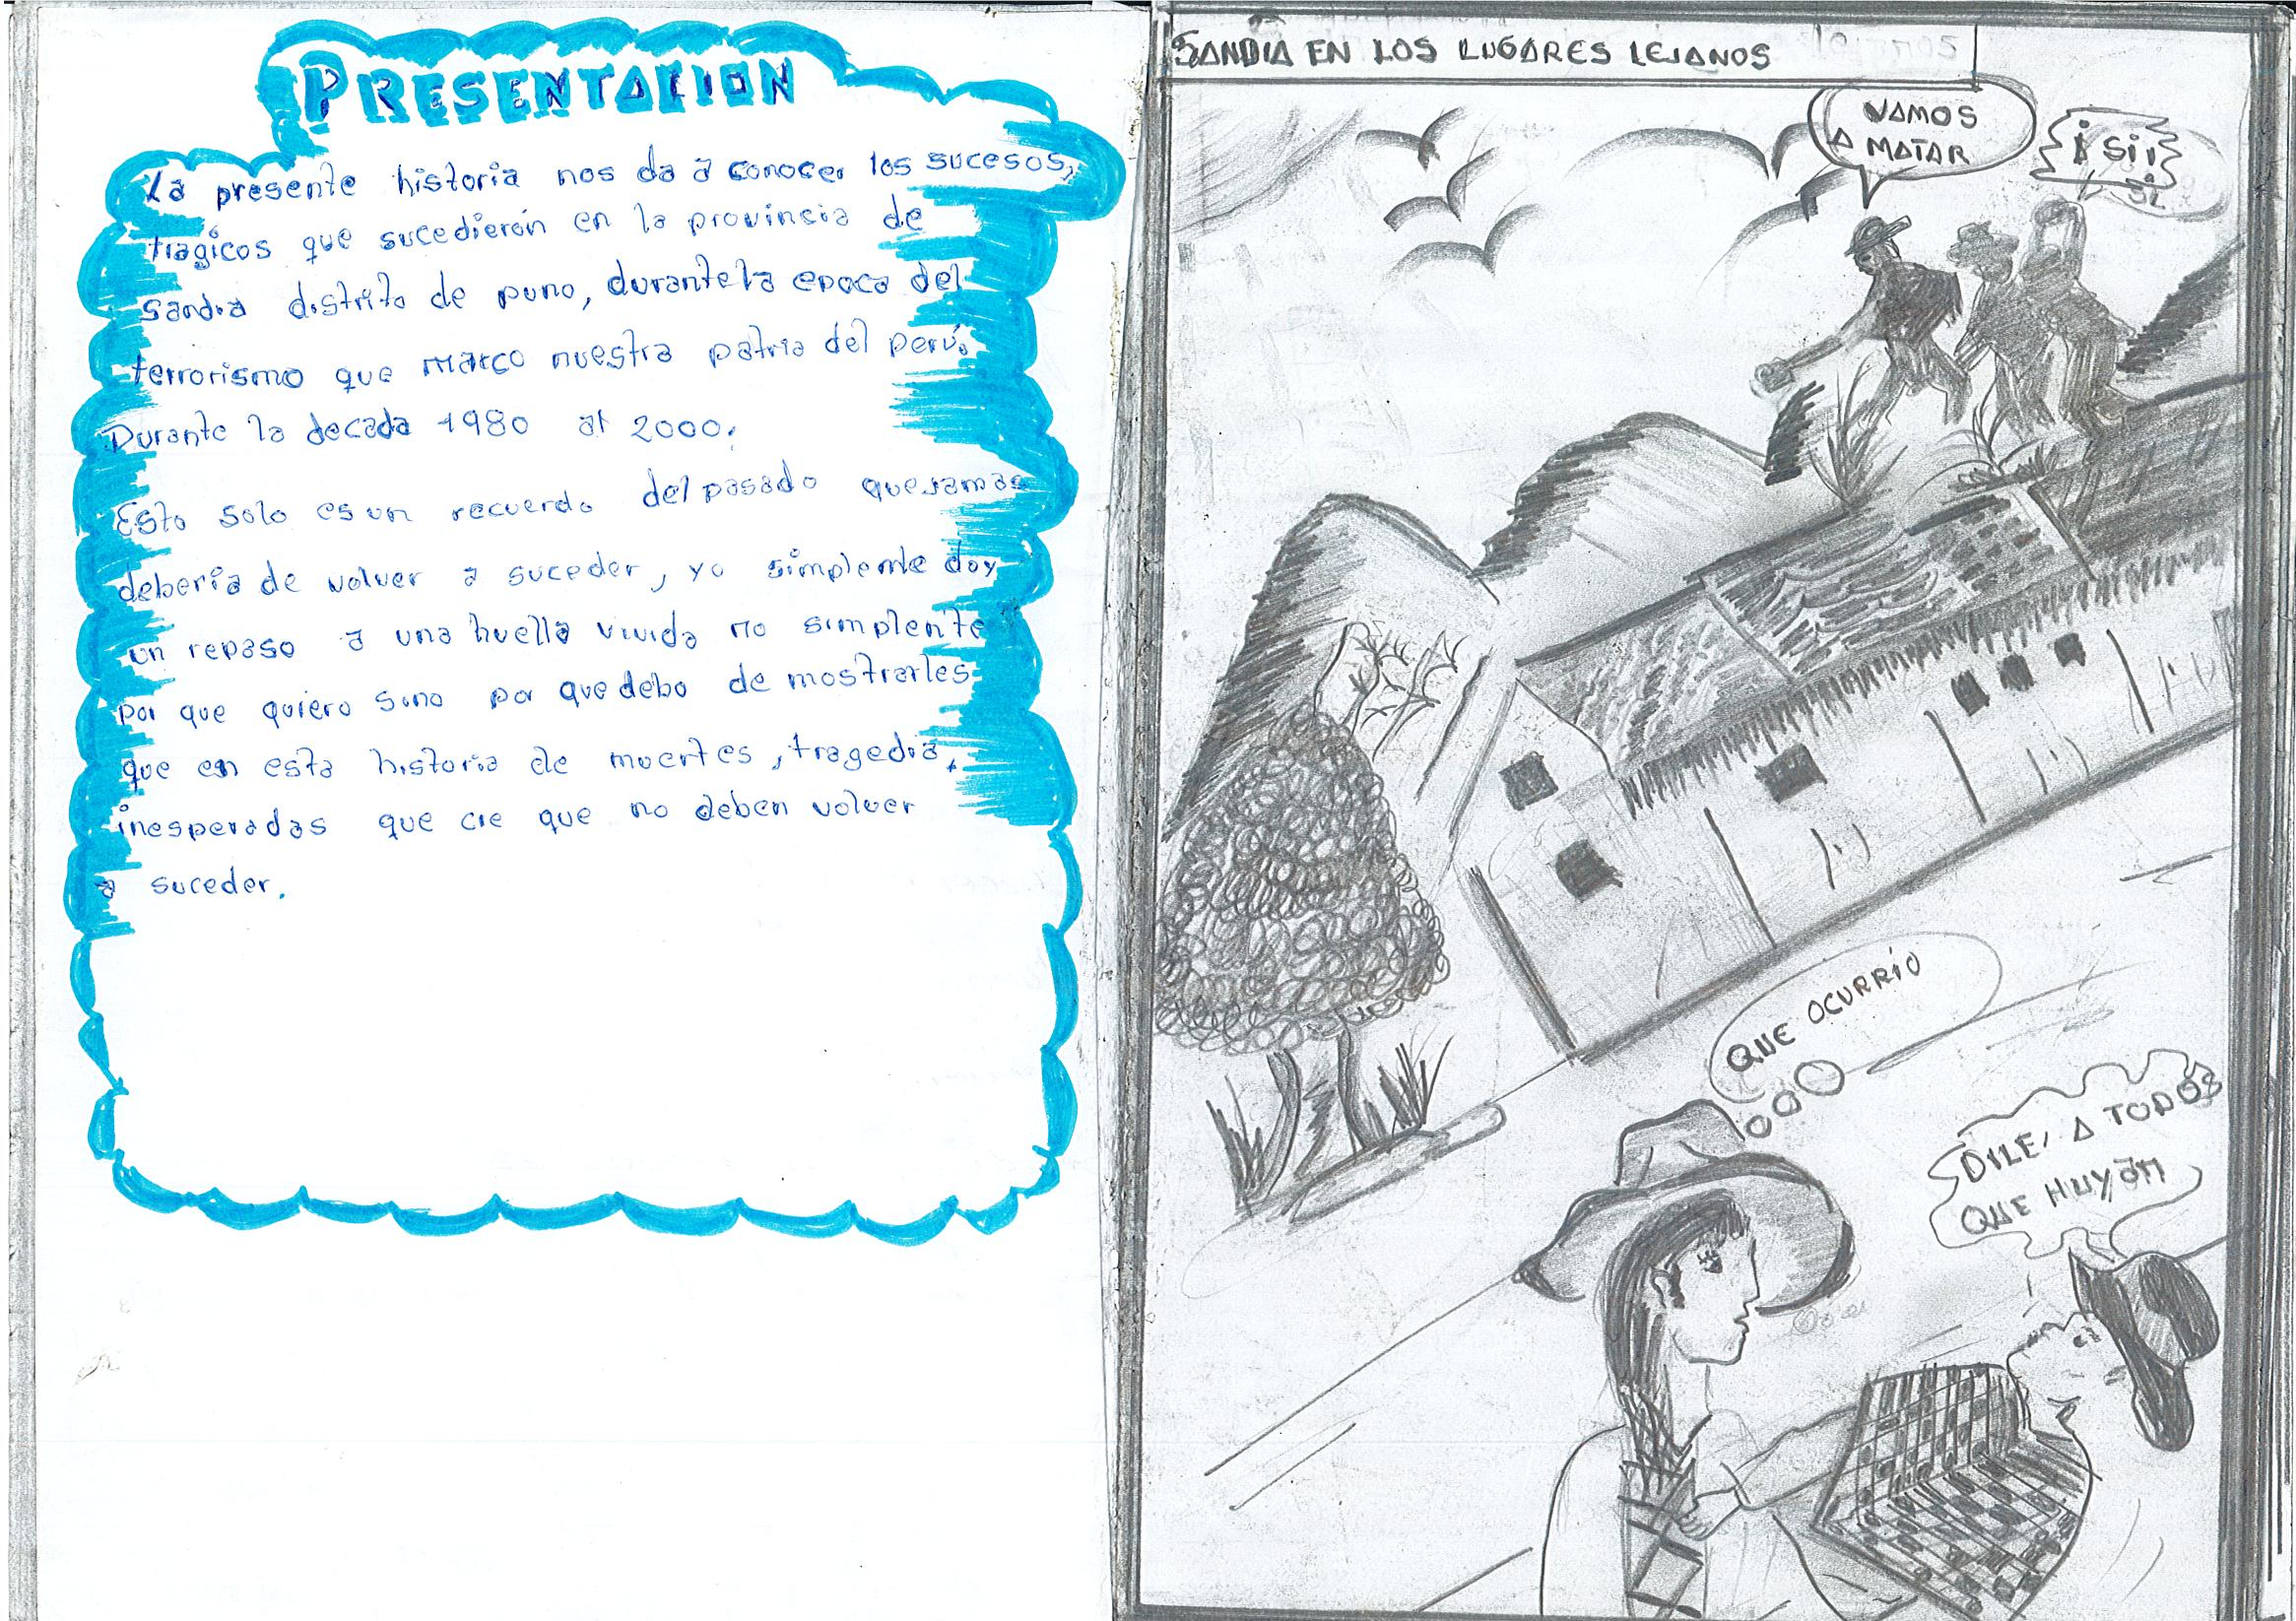 PRESENTACION
La presente historia nos da a conocer los sucesos,
tragicos que sucedierón en la provincia de
sandia distrito de puno, durante la epoca del
terrorismo que marco nuestra patria del perú.
Durante la decada 1980 al 2000.
Esto solo es un recuerdo del pasado que jamas
deberia de volver a suceder, yo simplente doy
un repaso a una huella vivida no simplente
por que quiero sino por que debo de mostrarles
que en esta historia de muertes, tragedia,
inesperadas que cre que no deben volver
a suceder.
SANDIA EN LOS LUGARES LEJANOS
VAMOS
A MATAR
¡SII
SI
QUE OCURRÍO
DILE, A TODOS
QUE HUYAN